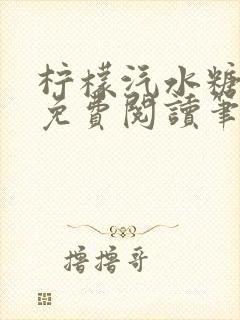 柠檬汽水糖
免費閱讀筆
擼擼哥